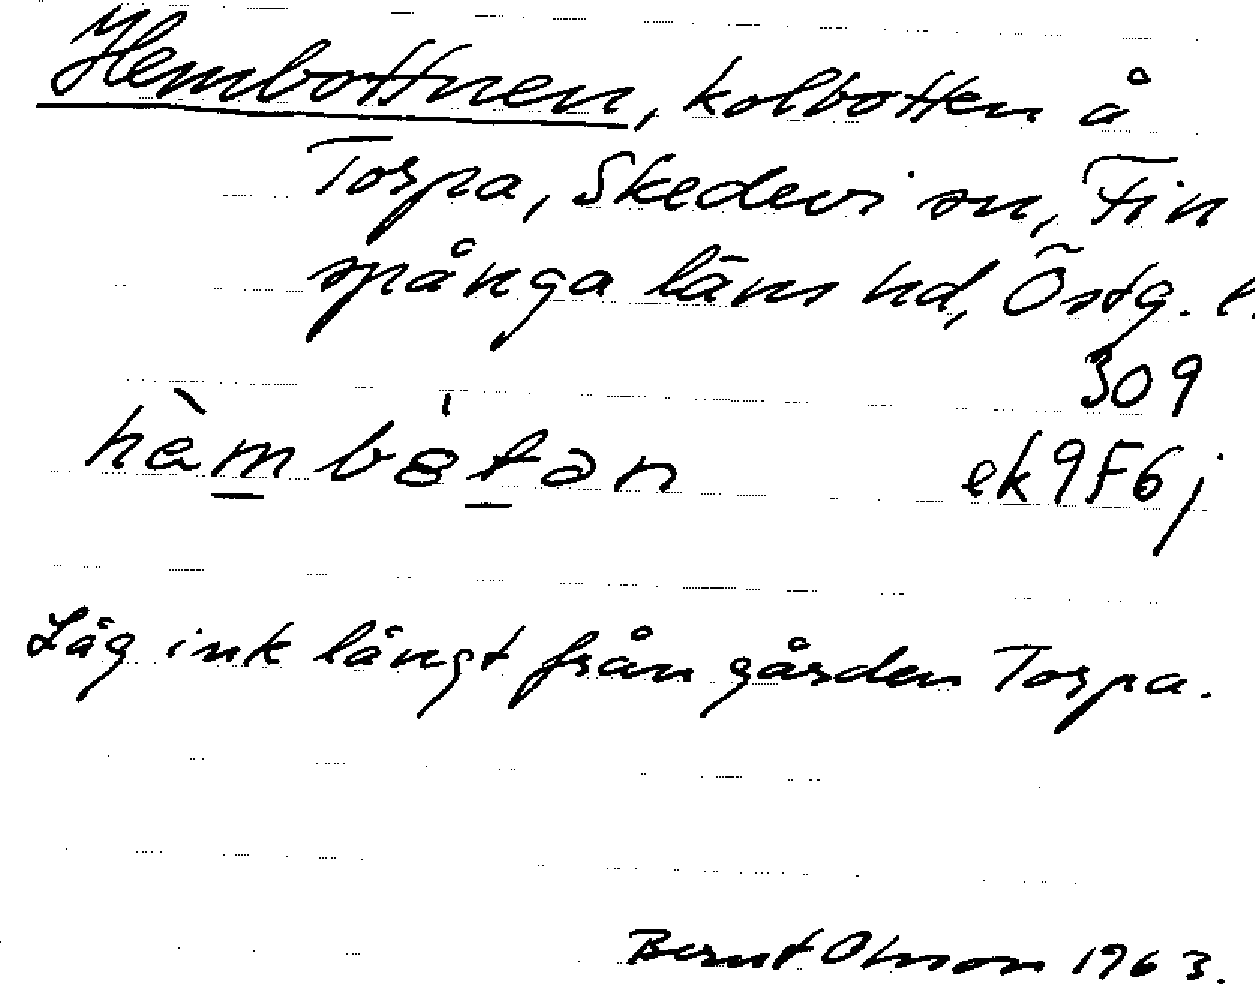 Hembottnen, kolbotten å
Torpa, Skedevi sn, Fin
spånga läns hd, Östg. l.
309
hèmbɵ́tən ek9F6j
Låg ink långt från gården Torpa.
Bernt Olsson 1963.